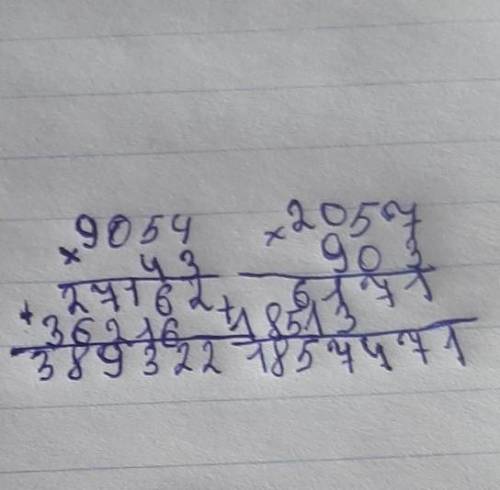 ×9054
43
27162
+36216
389322
×2057
903
6171
+18513
1857471